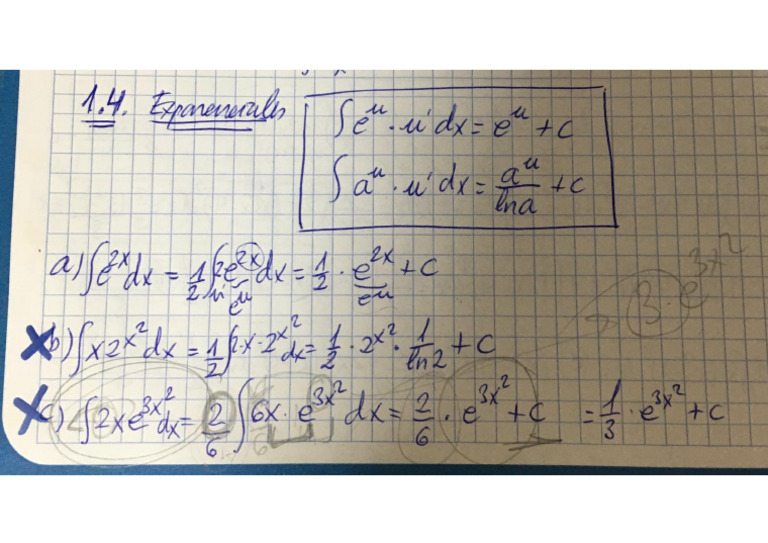 1.4. Exponenciales
∫e^u · u' dx = e^u + c
∫a^u · u' dx = a^u/lna + c
a) ∫e^2x dx = 1/2 ∫2e^2x dx = 1/2 · e^2x + c
u' e^u e^u
3 · e^3x^2
b) ∫x·2^x^2 dx = 1/2 ∫2·x·2^x^2 dx = 1/2 · 2^x^2 · 1/ln2 + c
c) ∫2x e^3x^2 dx = 2/6 ∫6x · e^3x^2 dx = 2/6 · e^3x^2 + c = 1/3 · e^3x^2 + c